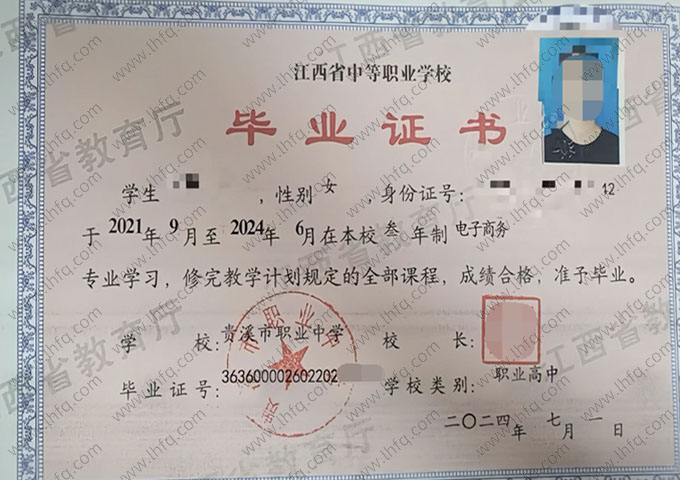 江西省中等职业学校
毕业证书
学生 ，性别 女 ，身份证号：
于 2021年 9 月至 2024年 6月在本校 叁 年制 电子商务
专业学习，修完教学计划规定的全部课程，成绩合格，准予毕业。
学 校：贵溪市职业中学 校 长
毕业证号：363600002602202 学校类别：职业高中
二〇二四年 七月 一日
江西省教育厅
www.lhfq.com